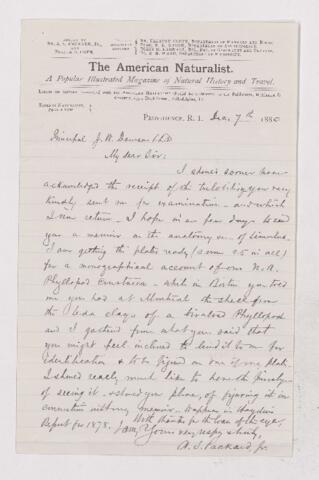 The American Naturalist.
A Popular Illustrated Magazine of Natural History and Travel.
Providence, R. I. Dec. 7th 1880
Principal J. W. Dawson LLD
My dear Sir:
I should sooner have
acknowledged the receipt of the you very
kindly sent me for examination and which
I now return. I hope in a few days to send
you a memoir on the anatomy &c. of Limulus.
I am getting the plates ready (some 25 in all)
for a monographical account of our N. A.
Phyllopod Crustacea. While in Boston you told
me you had at Montreal the shell from
the Leda clays of a bivalved Phyllopod
and I gathered from what you said that
you might feel inclined to lend it to me for
identification & to be figured on one of my plates.
I should really much like to have the privilege
of seeing it & should you please, of figuring it in
connection with my memoir to appear in Hayden's
Report for 1878. With thanks for the loan of the
I am, Yours very respectfully,
A. S. Packard, Jr.